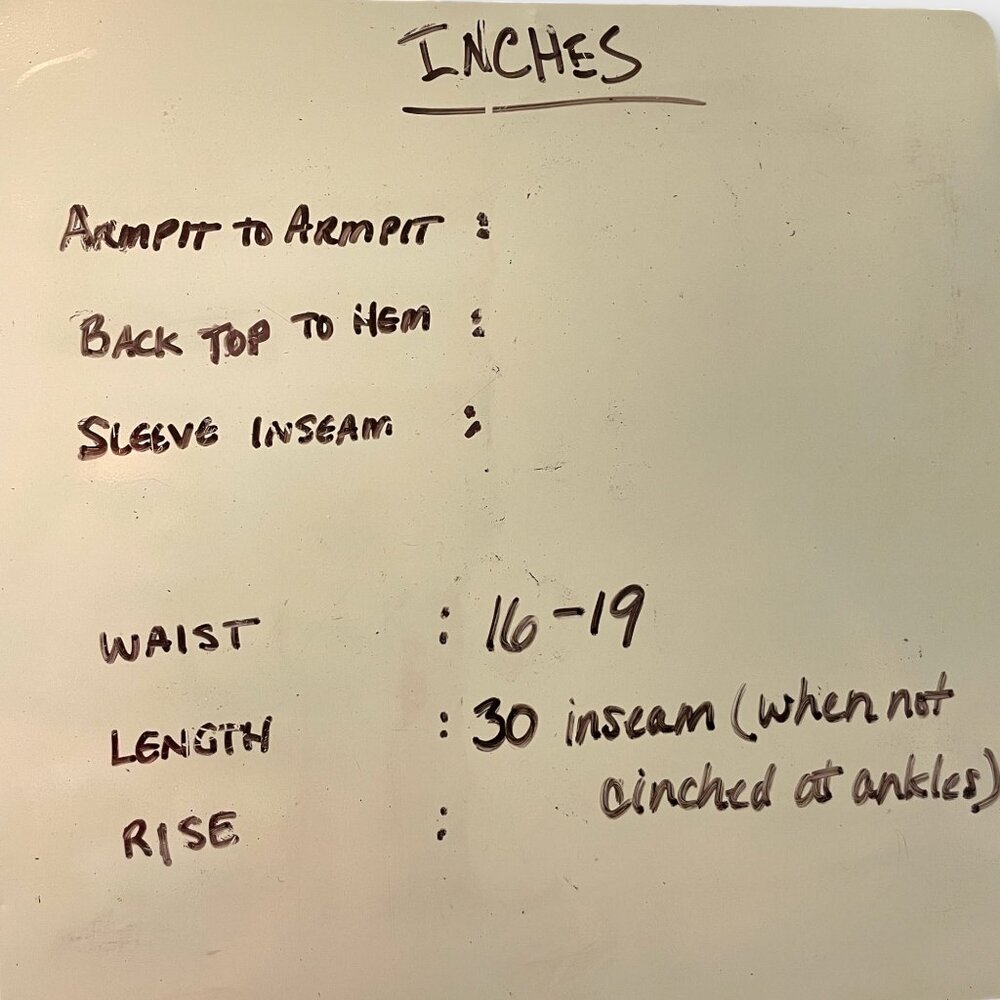 INCHES
ARMPIT TO ARMPIT :
BACK TOP TO HEM :
SLEEVE INSEAM :
WAIST : 16-19
LENGTH : 30 inseam (when not
cinched at ankles)
RISE :